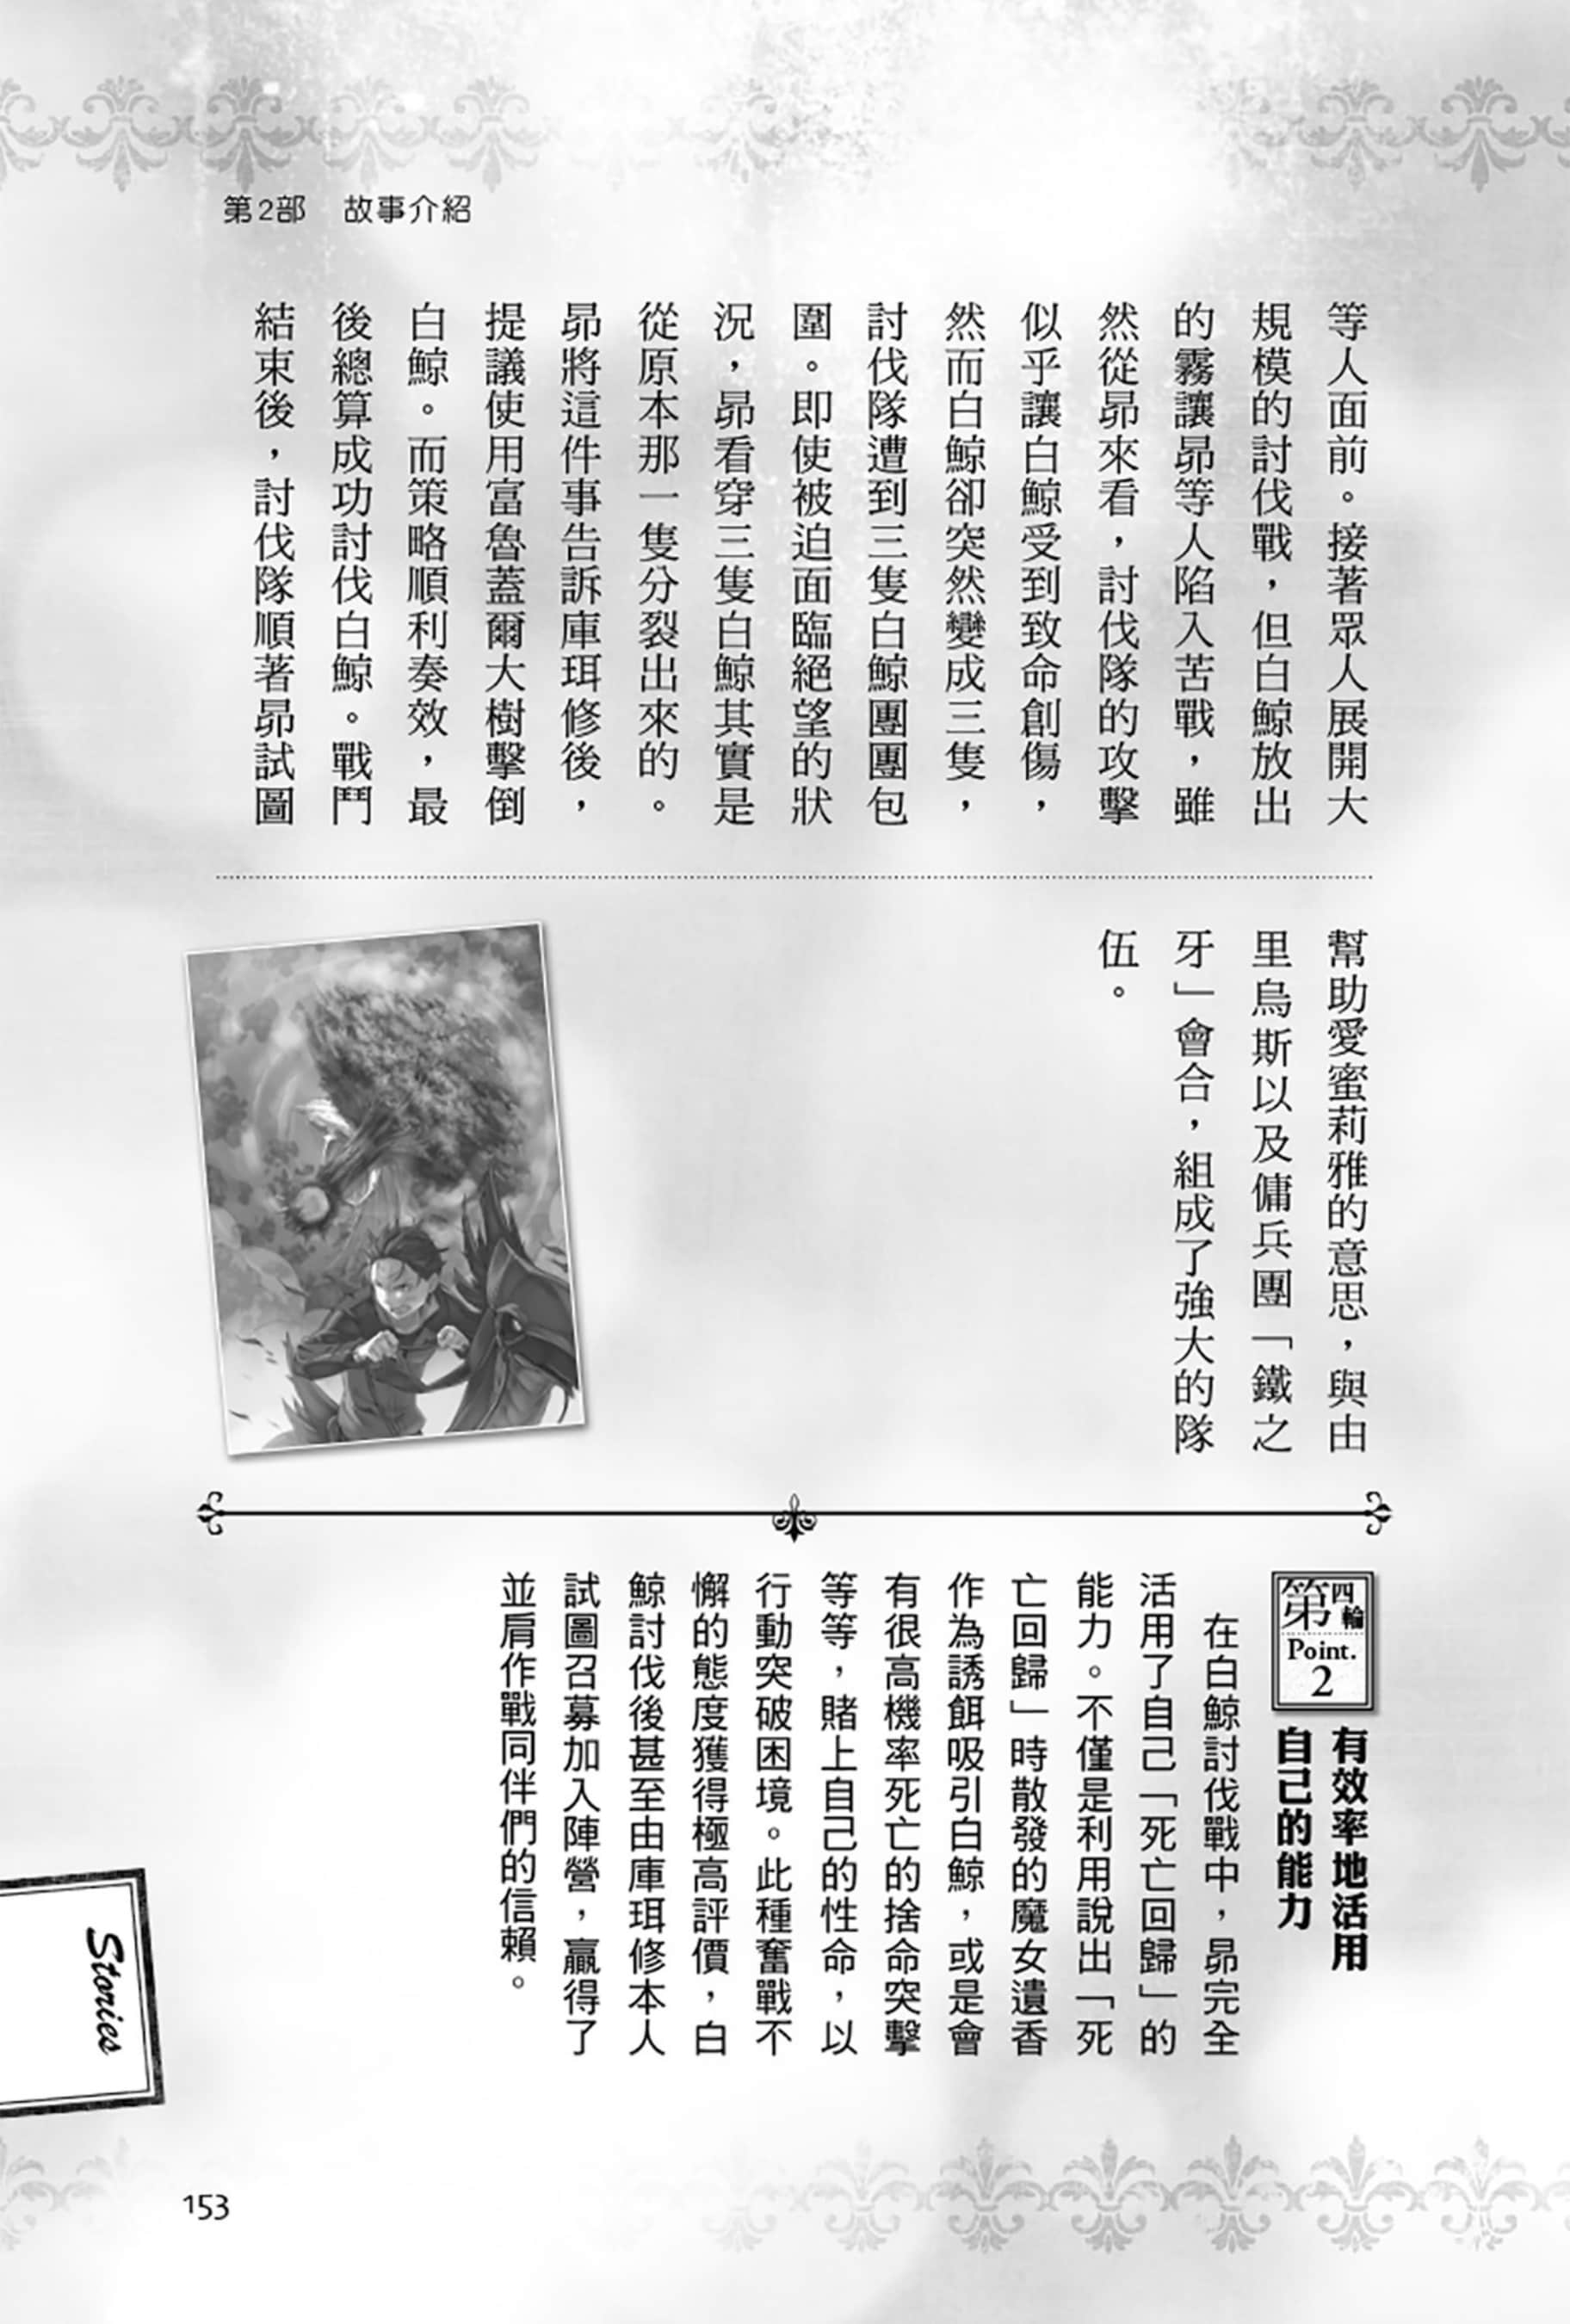 第2部　故事介紹
等人面前。接著眾人展開大
規模的討伐戰，但白鯨放出
的霧讓昴等人陷入苦戰，雖
然從昴來看，討伐隊的攻擊
似乎讓白鯨受到致命創傷，
然而白鯨卻突然變成三隻，
討伐隊遭到三隻白鯨團團包
圍。即使被迫面臨絕望的狀
況，昴看穿三隻白鯨其實是
從原本那一隻分裂出來的。
昴將這件事告訴庫珥修後，
提議使用富魯蓋爾大樹擊倒
白鯨。而策略順利奏效，最
後總算成功討伐白鯨。戰鬥
結束後，討伐隊順著昴試圖
幫助愛蜜莉雅的意思，與由
里烏斯以及傭兵團「鐵之
牙」會合，組成了強大的隊
伍。
第四輪
Point.
2
有效率地活用
自己的能力
在白鯨討伐戰中，昴完全
活用了自己「死亡回歸」的
能力。不僅是利用說出「死
亡回歸」時散發的魔女遺香
作為誘餌吸引白鯨，或是會
有很高機率死亡的捨命突擊
等等，賭上自己的性命，以
行動突破困境。此種奮戰不
懈的態度獲得極高評價，白
鯨討伐後甚至由庫珥修本人
試圖召募加入陣營，贏得了
並肩作戰同伴們的信賴。
Stories
153